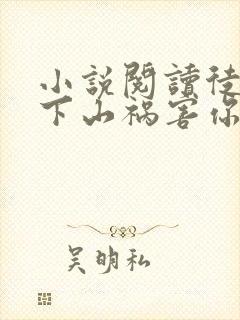 小說閱讀徒
下山禍害你
吴明私